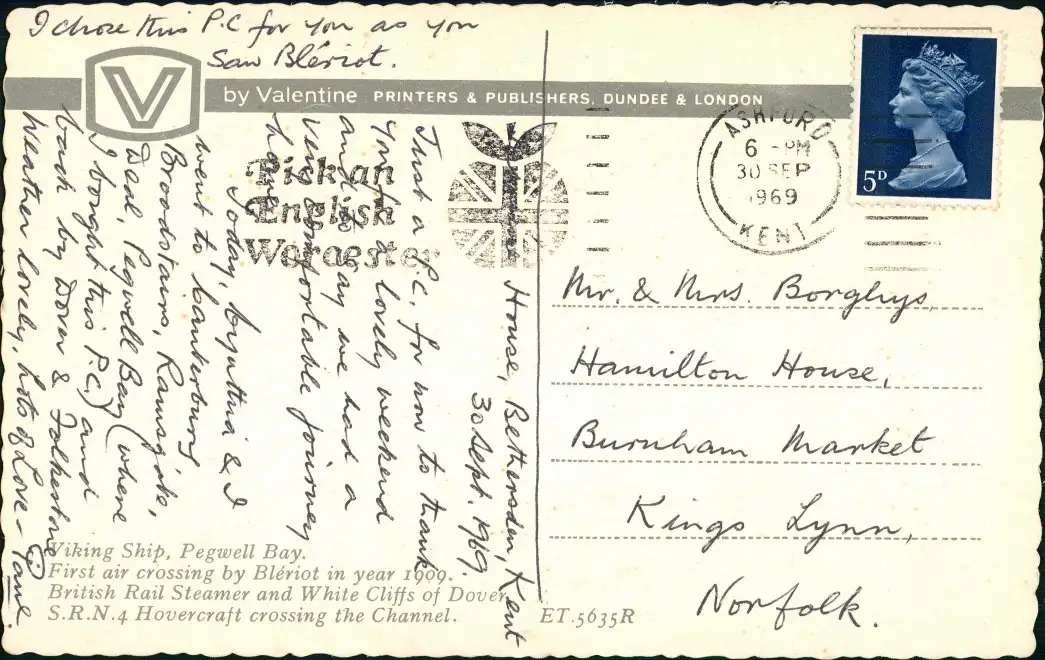 I chose this P.C for you as you
Saw Blériot.
V
by Valentine PRINTERS & PUBLISHERS, DUNDEE & LONDON
ASHFORD
6 - PM
30 SEP
1969
KENT
5D
Pick an
English
Worcester
House, Bethersden, Kent
30 Sept. 1969.
Just a P.C, for now to thank
you for lovely weekend
and to say we had a
very comfortable journey
home
Today, Cynthia & I
went to Canterbury
Broadstairs, Ramsgate,
Deal, Pegwell Bay (where
I bought this P.C.) and
back by Dover & Folkestone
Weather lovely, Lots of Love -
Mr. & Mrs. Borghys,
Hamilton House,
Burnham Market
Kings Lynn,
Norfolk.
Viking Ship, Pegwell Bay.
First air crossing by Blériot in year 1909.
British Rail Steamer and White Cliffs of Dover
S.R.N.4 Hovercraft crossing the Channel.
ET.5635R